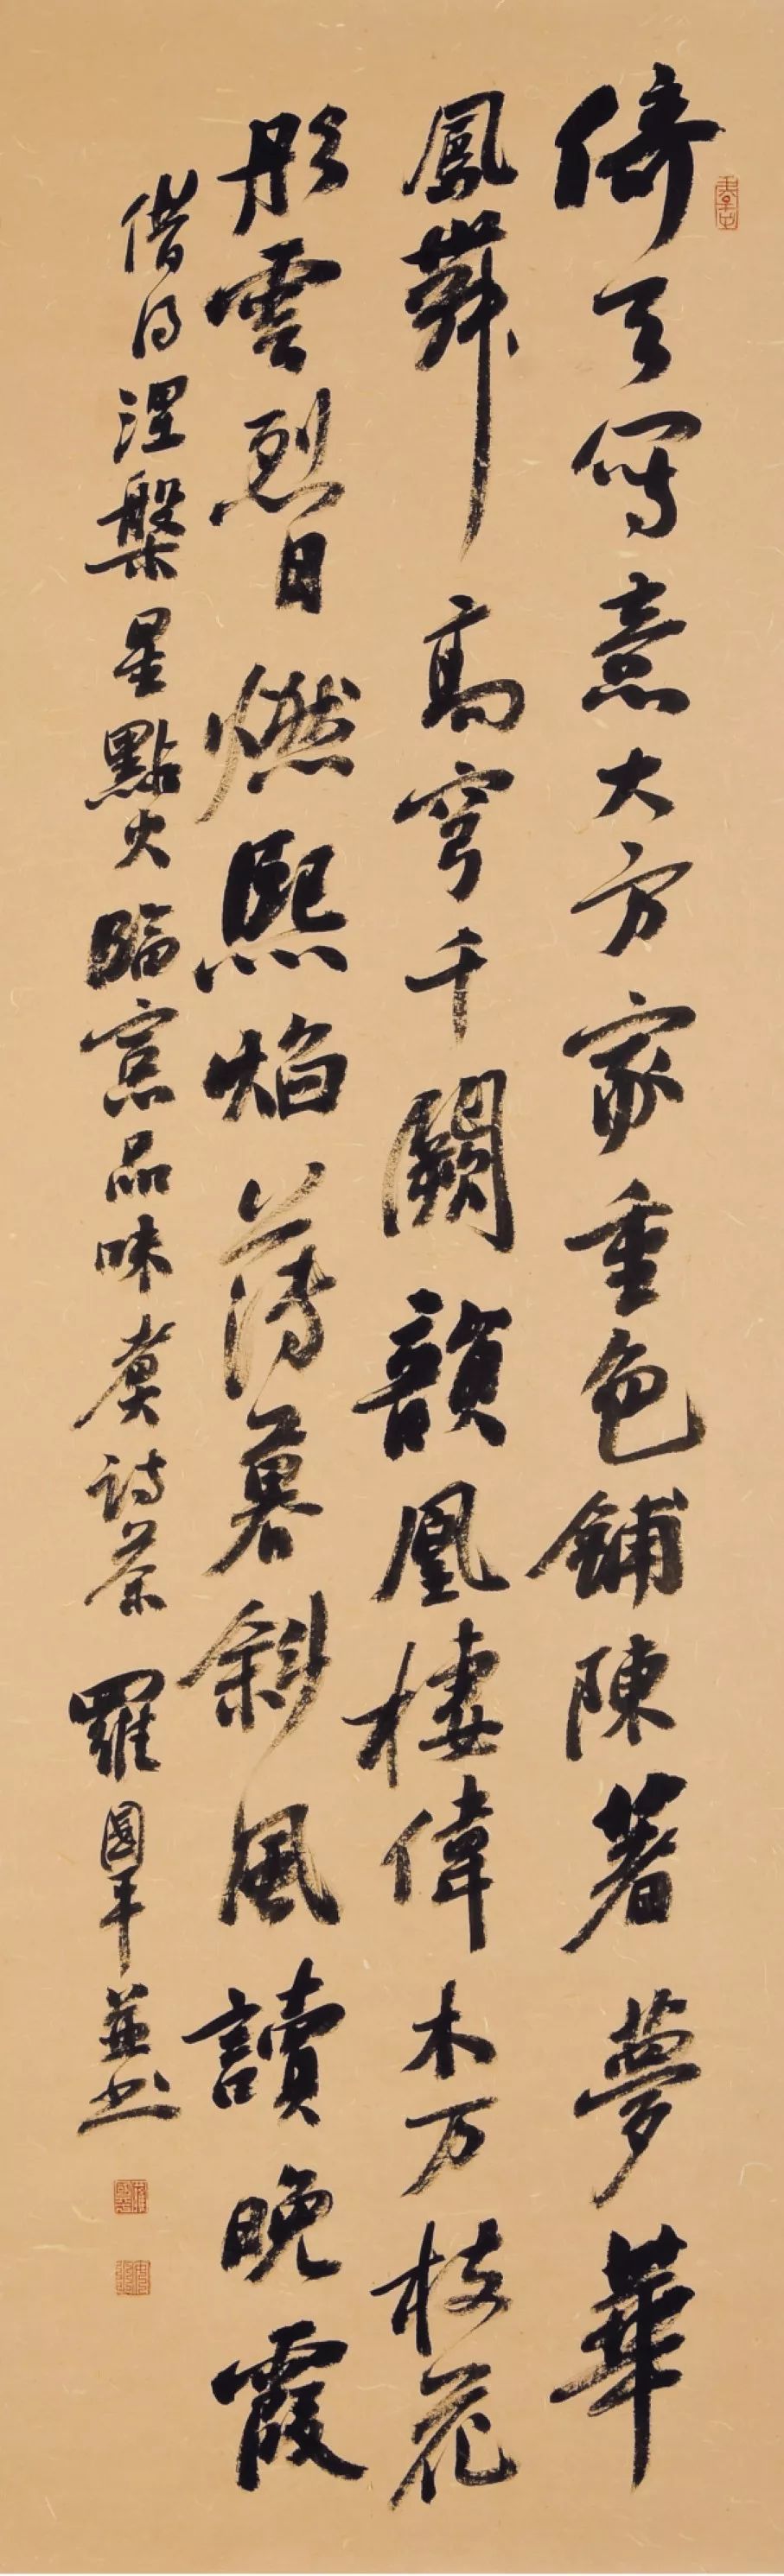 倚天寫意大方家重色鋪陳著夢華
鳳舞高穹千闕韻凰棲偉木万枝花
彤雲烈日燃熙焰薄暮斜風讀晚霞
借得涅槃星點火臨窓品味煮詩茶 羅國平並書